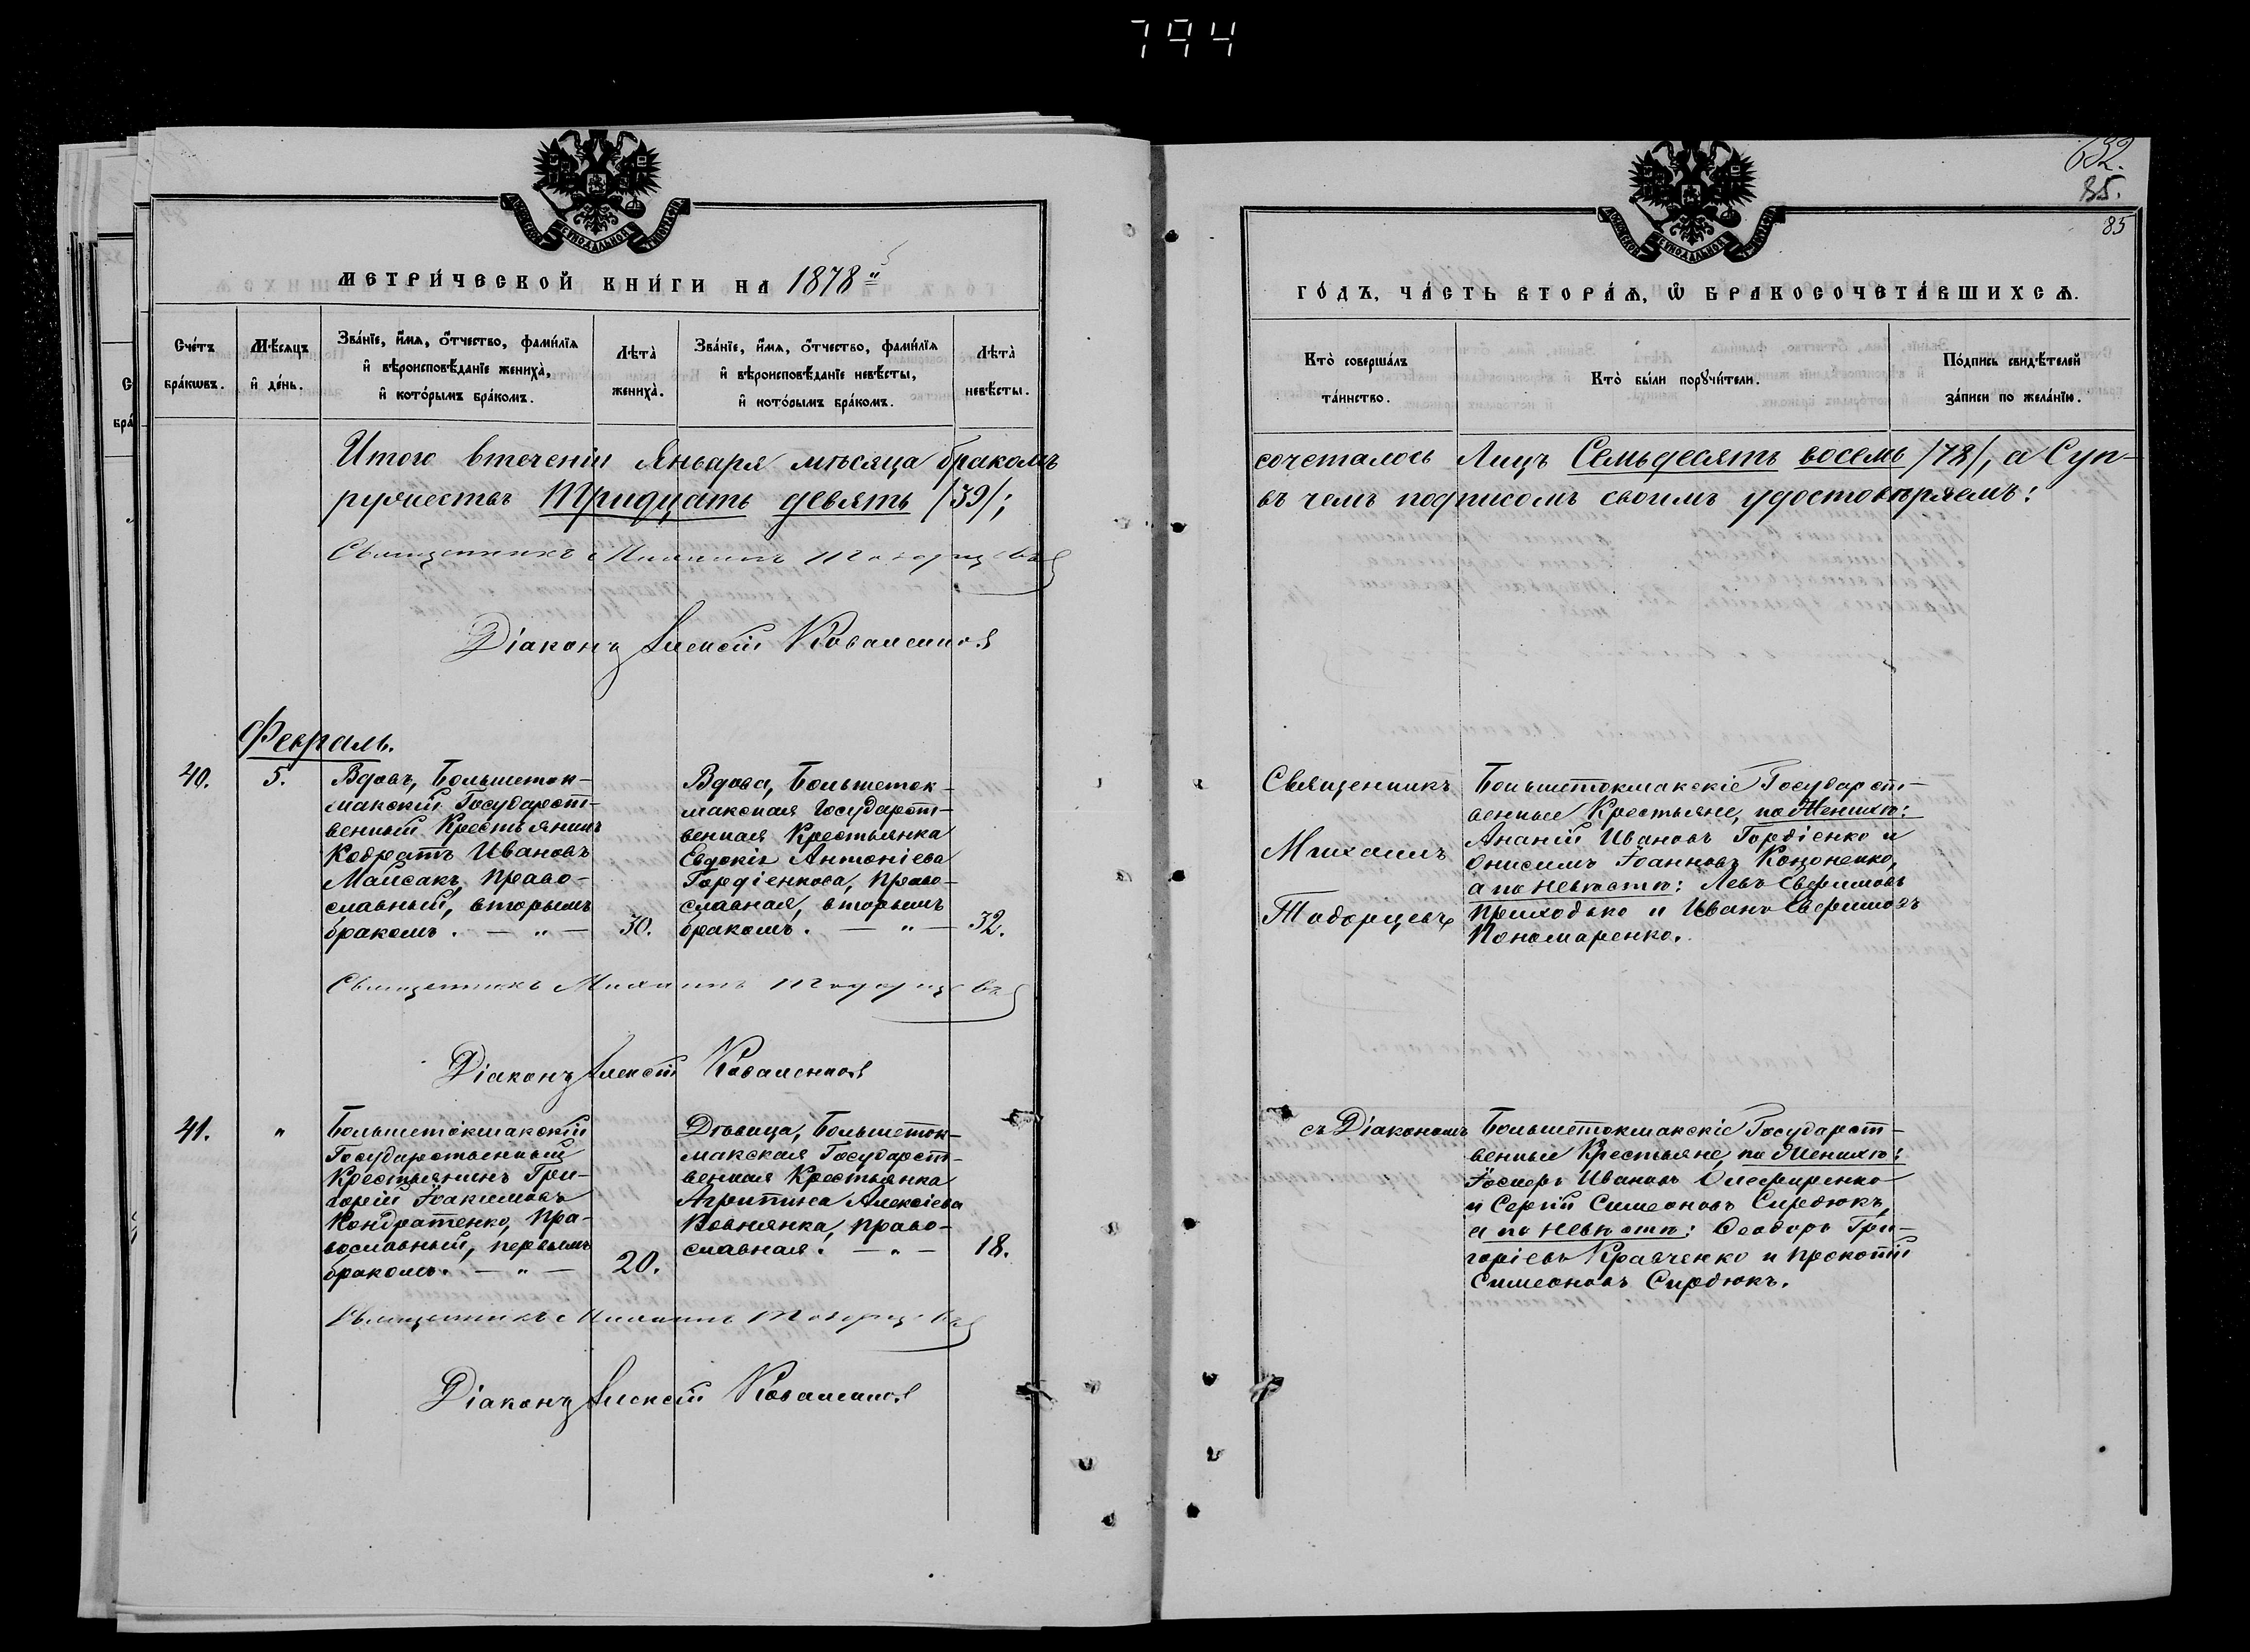 794
632.
85.
85
МЕТРИ́ЧЕСКОЙ КНИ́ГИ НА 1878й
Сче́тъ бра́кѡвъ.
Мѣ́сяцъ и҆ де́нь.
Зва́нїе, и҆́мѧ, ѻ҆́тчество, фами́лїѧ
и҆ вѣроисповѣ́данїе жениха̀,
и҆ кото́рымъ бра́комъ.
Лѣта̀ жениха̀.
Зва́нїе, и҆́мѧ, ѻ҆́тчество, фами́лїѧ
и҆ вѣроисповѣ́данїе невѣ́сты,
и҆ кото́рымъ бра́комъ.
Лѣта̀ невѣ́сты.
ГО́ДЪ, ЧА́СТЬ ВТОРА́Ѧ, Ѡ҆ БРАКОСОЧЕТА́ВШИХСѦ.
Кто̀ соверша́лъ та́инство.
Кто̀ бы́ли порꙋчи́тели.
По́дпись свидѣ́телей
за́писи по жела́нїю.
Итого втеченіи Января мѣсяца бракомъ сочеталось Лицъ Семьдесятъ восемь /78/, а Суп-
ружествъ Тридцать девять /39/; въ чемъ подписомъ своимъ удостовѣряемъ:
Священникъ Михаилъ Тодорцевъ
Діаконъ Алексій Коваленков
Февраль.
40.
5.
Вдовъ, Большеток-
макскій Государст-
венный Крестьянинъ
Кодратъ Ивановъ
Майсакъ, право-
славный, вторымъ
бракомъ. — „ —
30.
Вдова, Большеток-
макская Государст-
венная Крестьянка
Евдокія Антоніева
Гордіенкова, право-
славная, вторымъ
бракомъ. — „ —
32.
Священникъ
Михаилъ
Тодорцевъ
Большетокмакскіе Государст-
венные Крестьяне, по Женихѣ:
Ананій Ивановъ Гордіенко и
Онисимъ Іоанновъ Кононенко,
а по невѣстѣ: Левъ Евфимовъ
Приходько и Иванъ Евфимовъ
Пономаренко.
Священникъ Михаилъ Тодорцевъ
Діаконъ Алексій Коваленков
41.
„
Большетокмакскій
Государственный
Крестьянинъ Гри-
горій Іоакимовъ
Кондратенко, пра-
вославный, первымъ
бракомъ. — „ —
20.
Дѣвица, Большеток-
макская Государст-
венная Крестьянка
Агрипина Алексіева
Вовнянка, право-
славная. — „ —
18.
съ Діакономъ
Большетокмакскіе Государст-
венные Крестьяне, по Женихѣ:
Іосифъ Ивановъ Олефиренко
и Сергій Симеоновъ Сирдюкъ,
а по невѣстѣ: Ѳеодоръ Гри-
горіевъ Кравченко и Прокопій
Симеоновъ Сирдюкъ.
Священникъ Михаилъ Тодорцевъ
Діаконъ Алексій Коваленков